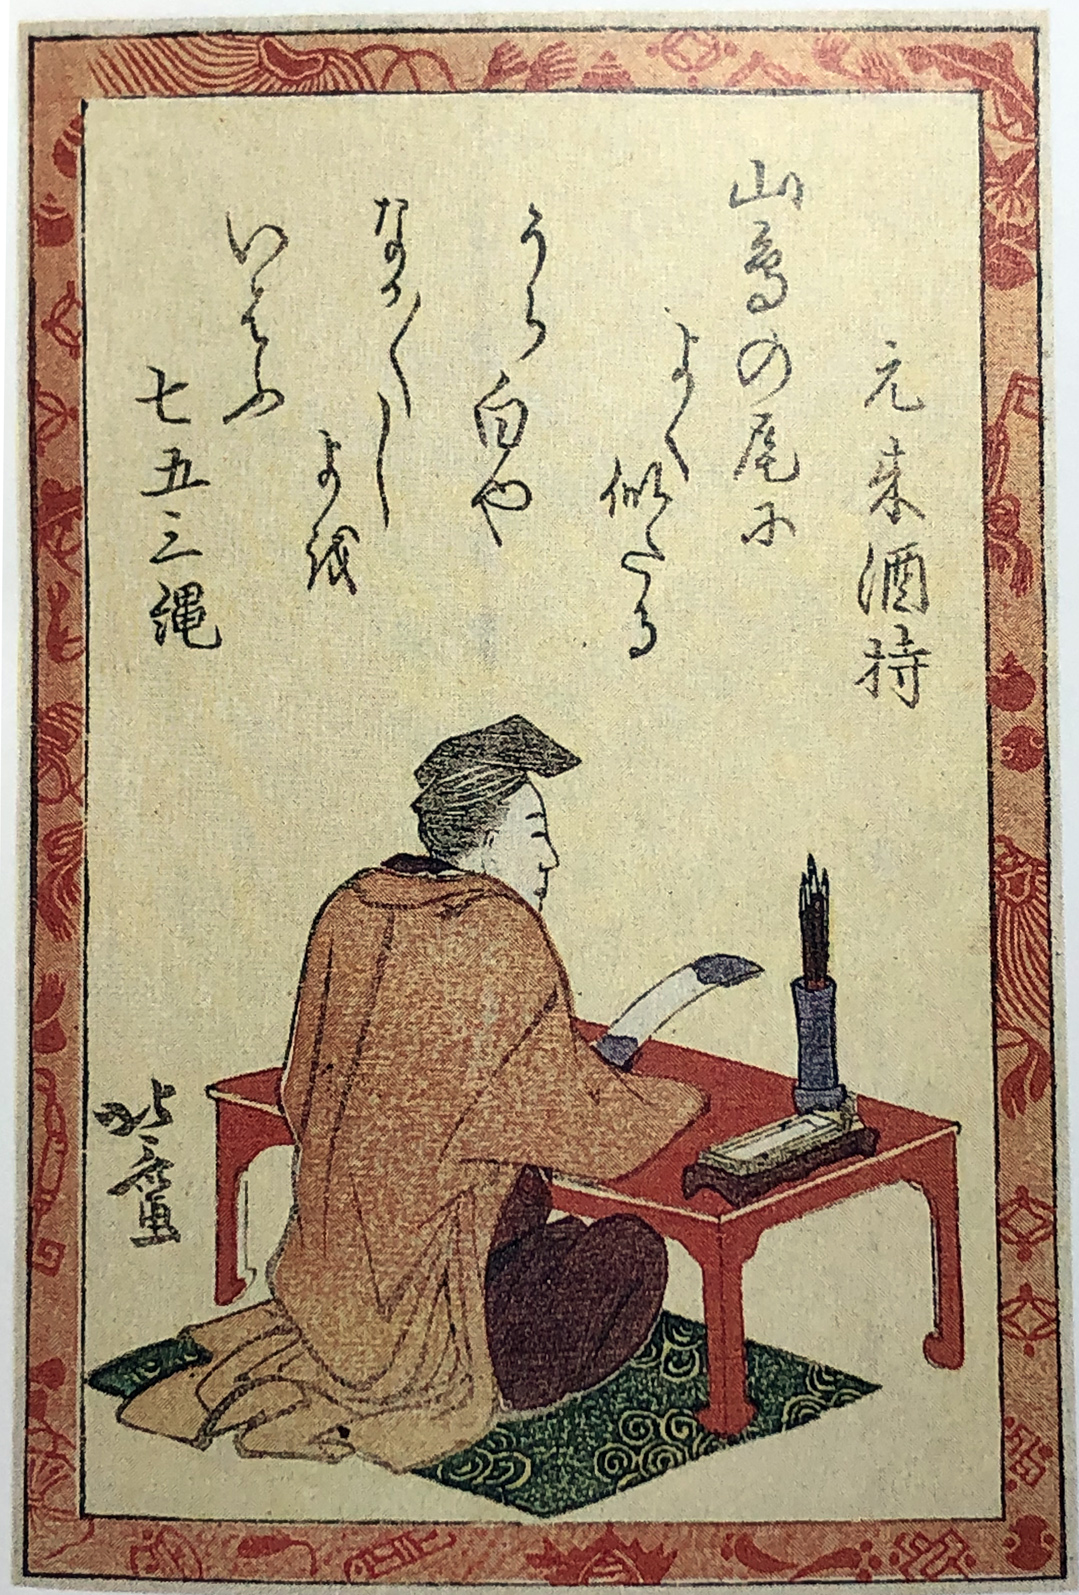 元来酒持
山鳥の尾に
よく似たる
うら白や
なか〱し
よを
いはふ
七五三縄
北斎画